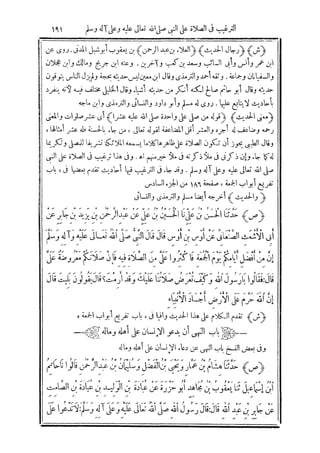 الترغيب فى الصلاة على النبى صلى الله تعالى عليه وعلى آله وسلم ١٩١
﴿ش﴾ ﴿رجال الحديث﴾ ﴿العلاء بن عبد الرحمن﴾ بن يعقوب أبو شبل المدنى. روى عن
ابن عمر وأنس وأبى السائب وسعد بن كعب وآخرين. وعنه ابن جريج ومالك وابن عجلان
والسفيانان وجماعة. وثقه أحمد والترمذى وقال ابن معين ليس حديثه بحجة ولم يزل الناس يتوقون
حديثه وقال أبو حاتم صالح لكنه أنكر من حديثه أشياء. وقال الخليلى مختلف فيه لأنه ينفرد
بأحاديث لا يتابع عليها. روى له مسلم وأبو داود والنسائى والترمذى وابن ماجه
﴿معنى الحديث﴾ ﴿قوله من صلى على واحدة صلى الله عليه عشرا﴾ أى عشر صلوات والمعنى
رحمه وضاعف له أجره والعشر أقل المضاعفة لقوله تعالى. من جاء بالحسنة فله عشر أمثالها.
وقال الطيبى يجوز أن تكون الصلاة على ظاهرها كلاما يسمعه الملائكة تشريفا للمصلى وتكريما
له كما جاء. وإن ذكرنى فى ملأ ذكرته فى ملأ خير منهم اه. وفى هذا ترغيب فى الصلاة على النبى صلى
الله تعالى عليه وعلى آله وسلم. وقد جاء فى الترغيب فيها أحاديث تقدم بعضها فى، باب
تفريع أبواب الجمعة، صفحة ١٨٦ من الجزء السادس
﴿والحديث﴾ أخرجه أيضا مسلم والترمذى والنسائى
﴿ص﴾ حَدَّثَنَا الْحَسَنُ بْنُ عَلِىٍّ نَا الْحُسَيْنُ بْنُ عَلِىٍّ عَنْ عَبْدِ الرَّحْمٰنِ بْنِ يَزِيدَ بْنِ جَابِرٍ عَنْ
أَبِى الْأَشْعَثِ الصَّنْعَانِىِّ عَنْ أَوْسِ بْنِ أَوْسٍ قَالَ قَالَ النَّبِىُّ صَلَّى اللهُ تَعَالَى عَلَيْهِ وَآلِهِ وَسَلَّمَ
إِنَّ مِنْ أَفْضَلِ أَيَّامِكُمْ يَوْمَ الْجُمُعَةِ فَأَكْثِرُوا عَلَىَّ مِنَ الصَّلَاةِ فِيهِ فَإِنَّ صَلَاتَكُمْ مَعْرُوضَةٌ عَلَىَّ
قَالَ فَقَالُوا يَارَسُولَ اللهِ وَكَيْفَ تُعْرَضُ صَلَاتُنَا عَلَيْكَ وَقَدْ أَرَمْتَ؟ قَالَ يَقُولُونَ بَلِيتَ قَالَ
إِنَّ اللهَ حَرَّمَ عَلَى الْأَرْضِ أَجْسَادَ الْأَنْبِيَاءِ
﴿ش﴾ تقدم الكلام على هذا الحديث وافيا فى، باب تفريع أبواب الجمعة،
باب النهى أن يدعو الإنسان على أهله وماله
وفى بعض النسخ باب النهى عن دعاء الإنسان على أهله وماله
﴿ص﴾ حَدَّثَنَا هِشَامُ بْنُ عَمَّارٍ وَيَحْيَى بْنُ الْفَضْلِ وَسُلَيْمَانُ بْنُ عَبْدِ الرَّحْمٰنِ قَالُوا نَا حَاتِمُ
ابْنُ إِسْمَاعِيلَ ثَنَا يَعْقُوبُ بْنُ مُجَاهِدٍ أَبُو حَزْرَةَ عَنْ عُبَادَةَ بْنِ الْوَلِيدِ بْنِ عُبَادَةَ بْنِ الصَّامِتِ
عَنْ جَابِرِ بْنِ عَبْدِ اللهِ قَالَ قَالَ رَسُولُ اللهِ صَلَّى اللهُ تَعَالَى عَلَيْهِ وَعَلَى آلِهِ وَسَلَّمَ لَا تَدْعُوا عَلَى